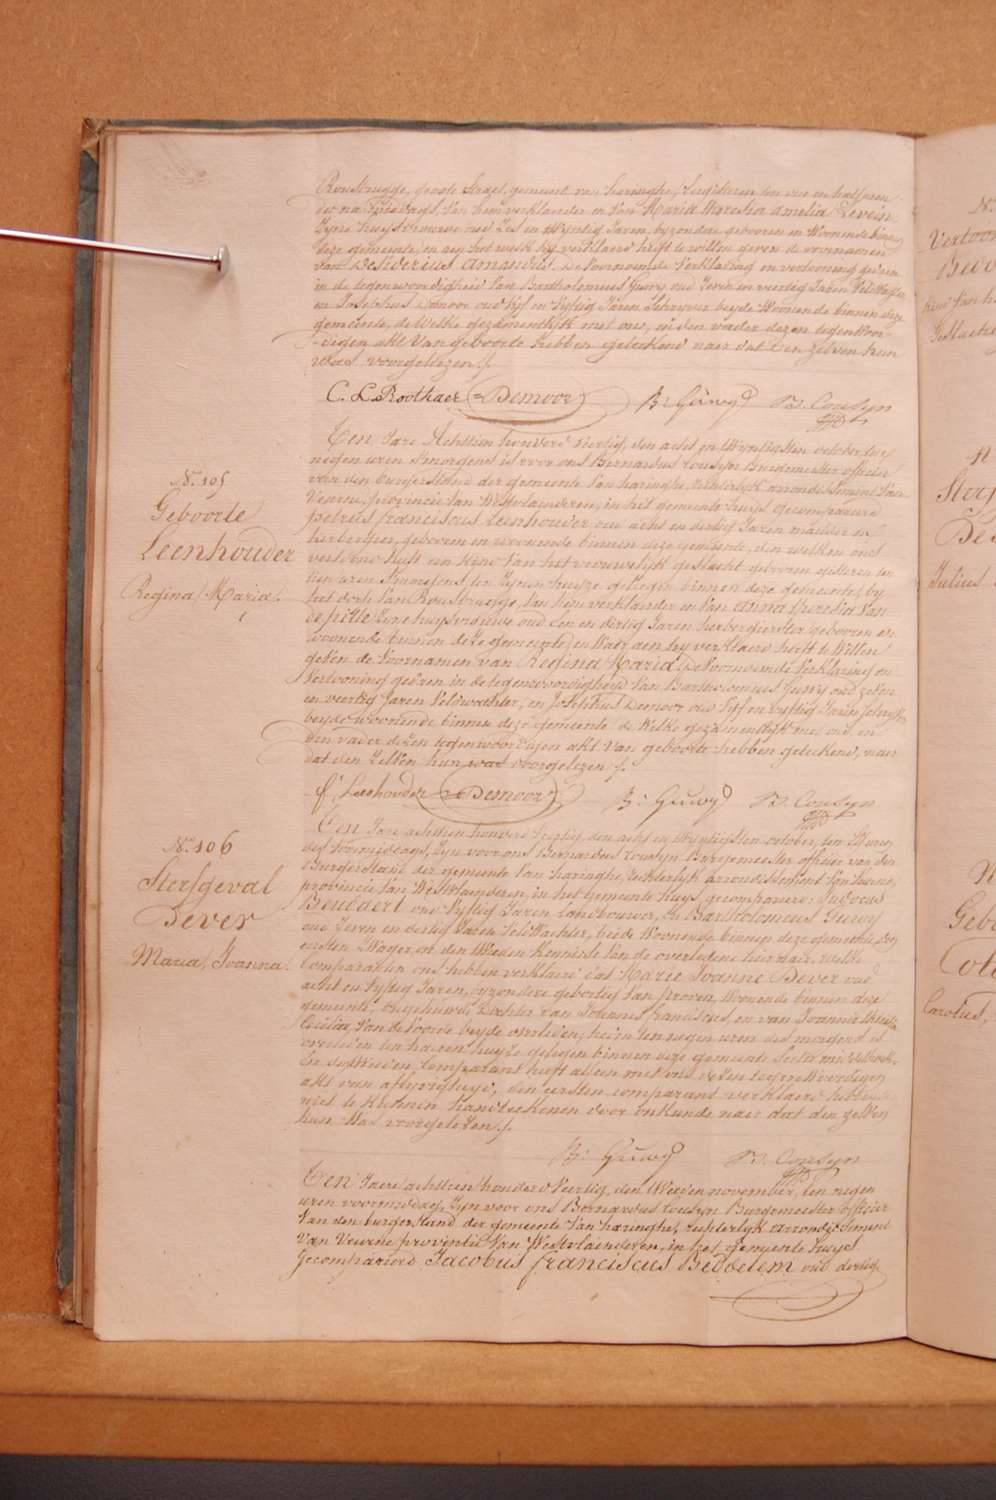 Rousbrugge, groote straet, gemeente van haringhe, gisteren ten vier en half uren
des na middags, van hem verklaerder en van Maria Theresia Amelia Levein
zyne huysvrouwe oud zes en twyntig Jaren, byzondere geboren en woonende binnen
deze gemeente, en aen het welk hy verklaerd heeft te willen geven de voornamen
van Desiderius Amandus. De voornoemde verklaring en vertooning gedaen
in de tegenwoordigheid van Bartholomeus Guwy oud zeven en veertig Jaren veldwagter
en Josephus Demoor oud vyf en vyftig Jaren schryver beyde woonende binnen deze
gemeente, de welke gezamentlyk met ons, en den vader dezen tegenwoor-
-digen akt van geboorte hebben geteekend naer dat den zelven hun
was voorgelezen ./.
C. L. Roothaer Demoor B: Guwy B. Cousyn
N. 105
Geboorte
Leenhouder
Regina Maria.
Ten Jare Achttien honderd veertig, den acht en twyntigsten october, ten
negen uren smorgens is voor ons Bernardus Cousyn Burgemeester officier
van den burgerstand der gemeente van haringhe, rechterlyk arrondissement van
Veurne, provincie van Westvlaenderen, in het gemeente huys gecompareerd
petrus franciscus Leenhouder oud acht en dertig Jaren maelder en
herbergier, geboren en woonende binnen deze gemeente, den welken ons
vertoond heeft een kind van het vrouwelyk geslacht geboren gisteren ten
tien uren smorgens ten zynen huyze gelegen binnen deze gemeente, by
het dorp van Rousbrugge, van hem verklaerder en van anna Aurelia Van
depitte zyne huysvrouwe oud een en dertig Jaren herbergierster geboren en
woonende binnen deze gemeente, en waer aen hy verklaerd heeft te willen
geven de voornamen van Regina Maria. De voornoemde verklaring en
vertooning gedaen in de tegenwoordigheyd van Bartholomeus Guwy oud zeven
en veertig Jaren veldwachter, en Josephus Demoor oud vyf en vyftig Jaren schryver
beyde woonende binnen deze gemeente de welke gezamentlyk met ons, en
den vader dezen tegenwoordigen akt van geboorte hebben geteekend, naer
dat den zelven hun was voorgelezen ./.
f. Leenhouder Demoor B: Guwy B. Cousyn
N. 106
Sterfgeval
Dever
Maria Joanna.
Ten Jare achttien honderd veertig, den acht en twyntigsten october, ten uren
des voormiddags, zyn voor ons Bernardus Cousyn Burgemeester officier van den
Burgerstand der gemeente van haringhe, rechterlyk arrondissement van Veurne,
provincie van Westvlaenderen, in het gemeente huys, gecompareerd: Judocus
Beudaert oud vyftig Jaren landbouwer, en Bartholomeus Guwy
oud zeven en veertig Jaren veldwachter, beide woonende binnen deze gemeente den
eersten zwager, en den tweeden kennisse van de overledene hier naer, welke
comparanten ons hebben verklaerd dat Marie Joanne Dever oud
acht en vyftig Jaren, byzondere geboortig van proven, woonende binnen deze
gemeente, ongehuwde dochter van Joannes franciscus, en van Joanna Theresia
Cecilia Van de Voorde beyde overleden, heden ten negen uren des morgens is
overleden ten haeren huyze gelegen binnen deze gemeente sectie middelhoek.
den tweeden comparant heeft alleen met ons dezen tegenwoordigen
akt van aflyvigheyd, den eersten comparant verklaerd hebbende
niet te kunnen handteekenen door onkunde naer dat den zelven
hun was voorgelezen ./.
B: Guwy B. Cousyn
Ten Jaere achttien honderd veertig, den tweeden november, ten negen
uren voormiddag, zyn voor ons Bernardus Cousyn Burgemeester officier
van den burgerstand der gemeente van haringhe, rechterlyk arrondissement
van Veurne provintie van Westvlaenderen, in het gemeente huys
Gecompareerd Jacobus franciscus Beddelem oud dertig
N.
Vertoon
Sterf
Julius
Geb
Carolus,